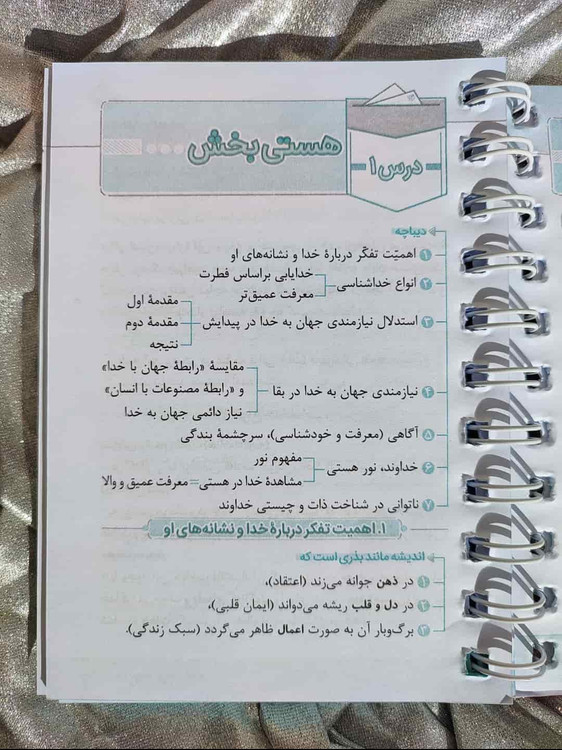 درس ۱
هستی بخش ...
دیباچه:
۱ اهمیّت تفکّر دربارهٔ خدا و نشانه‌های او
۲ انواع خداشناسی
خدایابی براساس فطرت
معرفت عمیق‌تر
۳ استدلال نیازمندی جهان به خدا در پیدایش
مقدمهٔ اول
مقدمهٔ دوم
نتیجه
۴ نیازمندی جهان به خدا در بقا
مقایسهٔ «رابطهٔ جهان با خدا»
و «رابطهٔ مصنوعات با انسان»
نیاز دائمی جهان به خدا
۵ آگاهی (معرفت و خودشناسی)، سرچشمهٔ بندگی
۶ خداوند، نور هستی
مفهوم نور
مشاهدهٔ خدا در هستی = معرفت عمیق و والا
۷ ناتوانی در شناخت ذات و چیستی خداوند
۱. اهمیت تفکر دربارهٔ خدا و نشانه‌های او
اندیشه مانند بذری است که:
۱ در ذهن جوانه می‌زند (اعتقاد)،
۲ در دل و قلب ریشه می‌دواند (ایمان قلبی)،
۳ برگ‌وبار آن به صورت اعمال ظاهر می‌گردد (سبک زندگی).